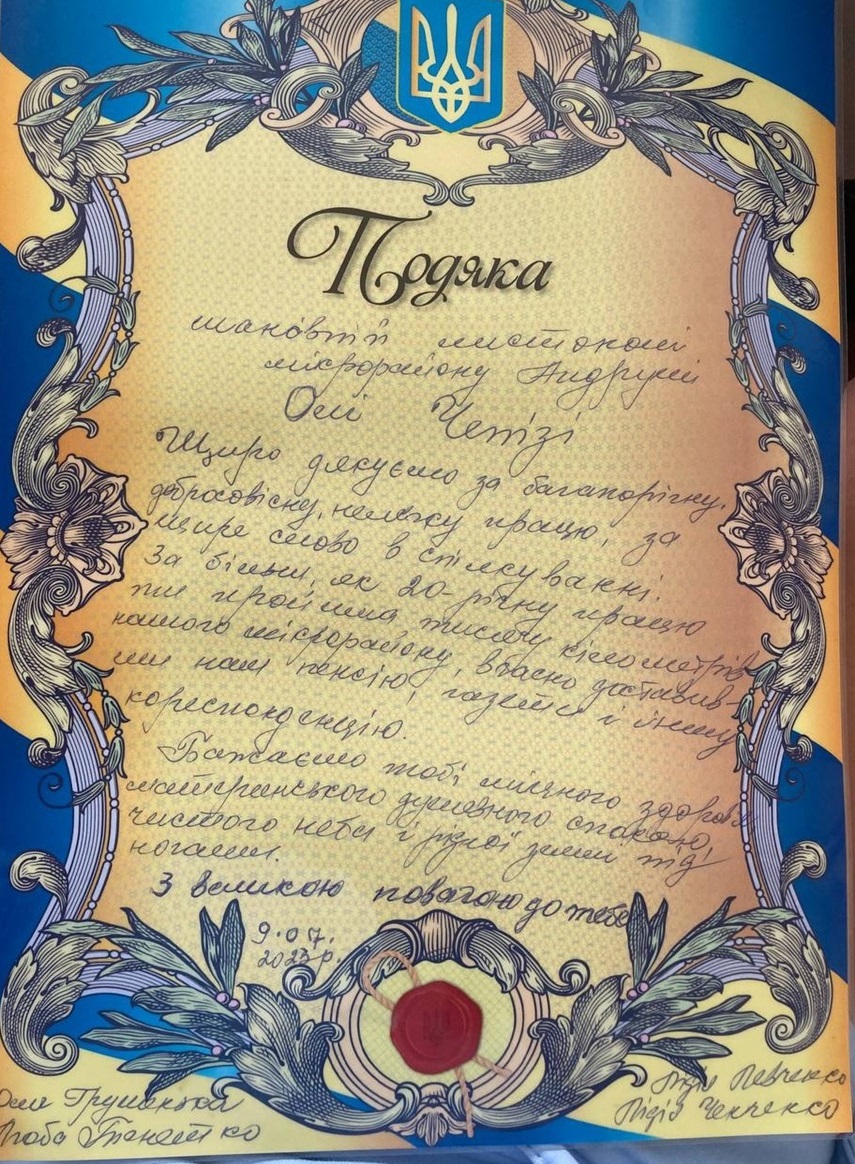 Подяка
шановній листоноші
мікрорайону
Олі Чепізі
Щиро дякуємо за багаторічну,
добросовісну, нелегку працю, за
щире слово в спілкуванні.
За більш, як 20-річну працю
ти пройшла тисячу кілометрів
нашого мікрорайону, вчасно доставив-
ши нам пенсію, газети і іншу
кореспонденцію.
Бажаємо тобі міцного здоров'я
материнського душевного спокою,
чистого неба і рідної землі під
ногами.
З великою повагою до тебе
9.07.
2023 р.
Лідія Левченко
Лідія
Люба